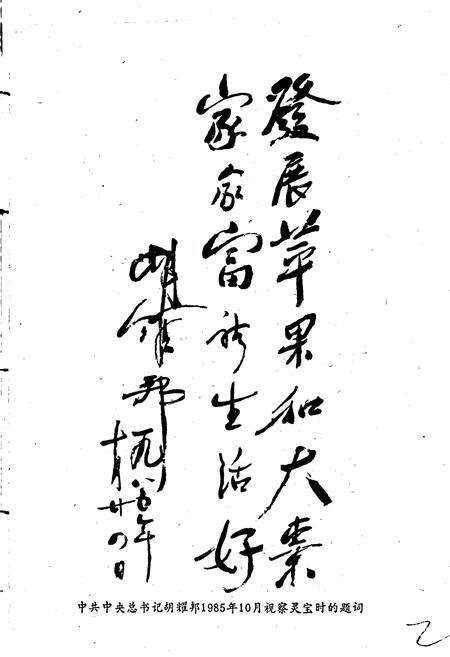 發展苹果和大棗
家家富裕生活好
胡耀邦
一九八五年
十月廿四日
中共中央总书记胡耀邦1985年10月视察灵宝时的题词